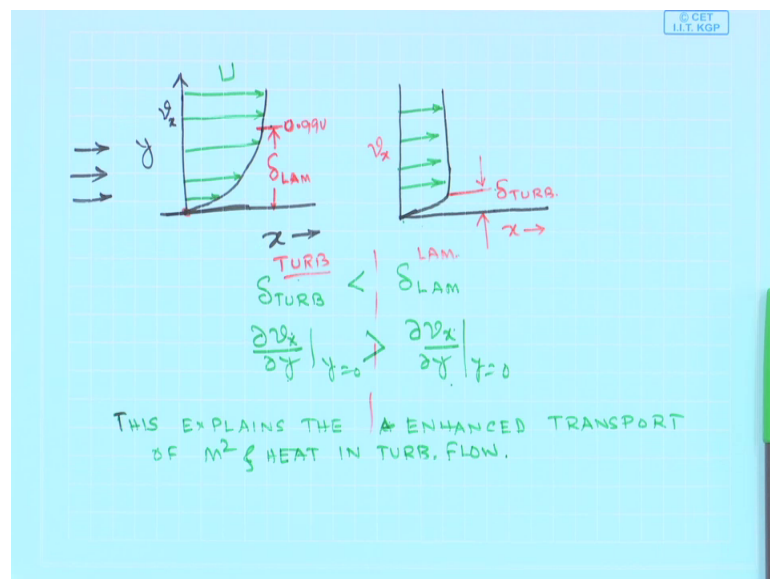 © CET
I.I.T. KGP
U
vₓ
0.99U
y
δ LAM
vₓ
δ TURB.
x →
x →
TURB
LAM.
δ TURB < δ LAM
∂vₓ/∂y |y=0 > ∂vₓ/∂y |y=0
THIS EXPLAINS THE ENHANCED TRANSPORT
OF M² & HEAT IN TURB. FLOW.